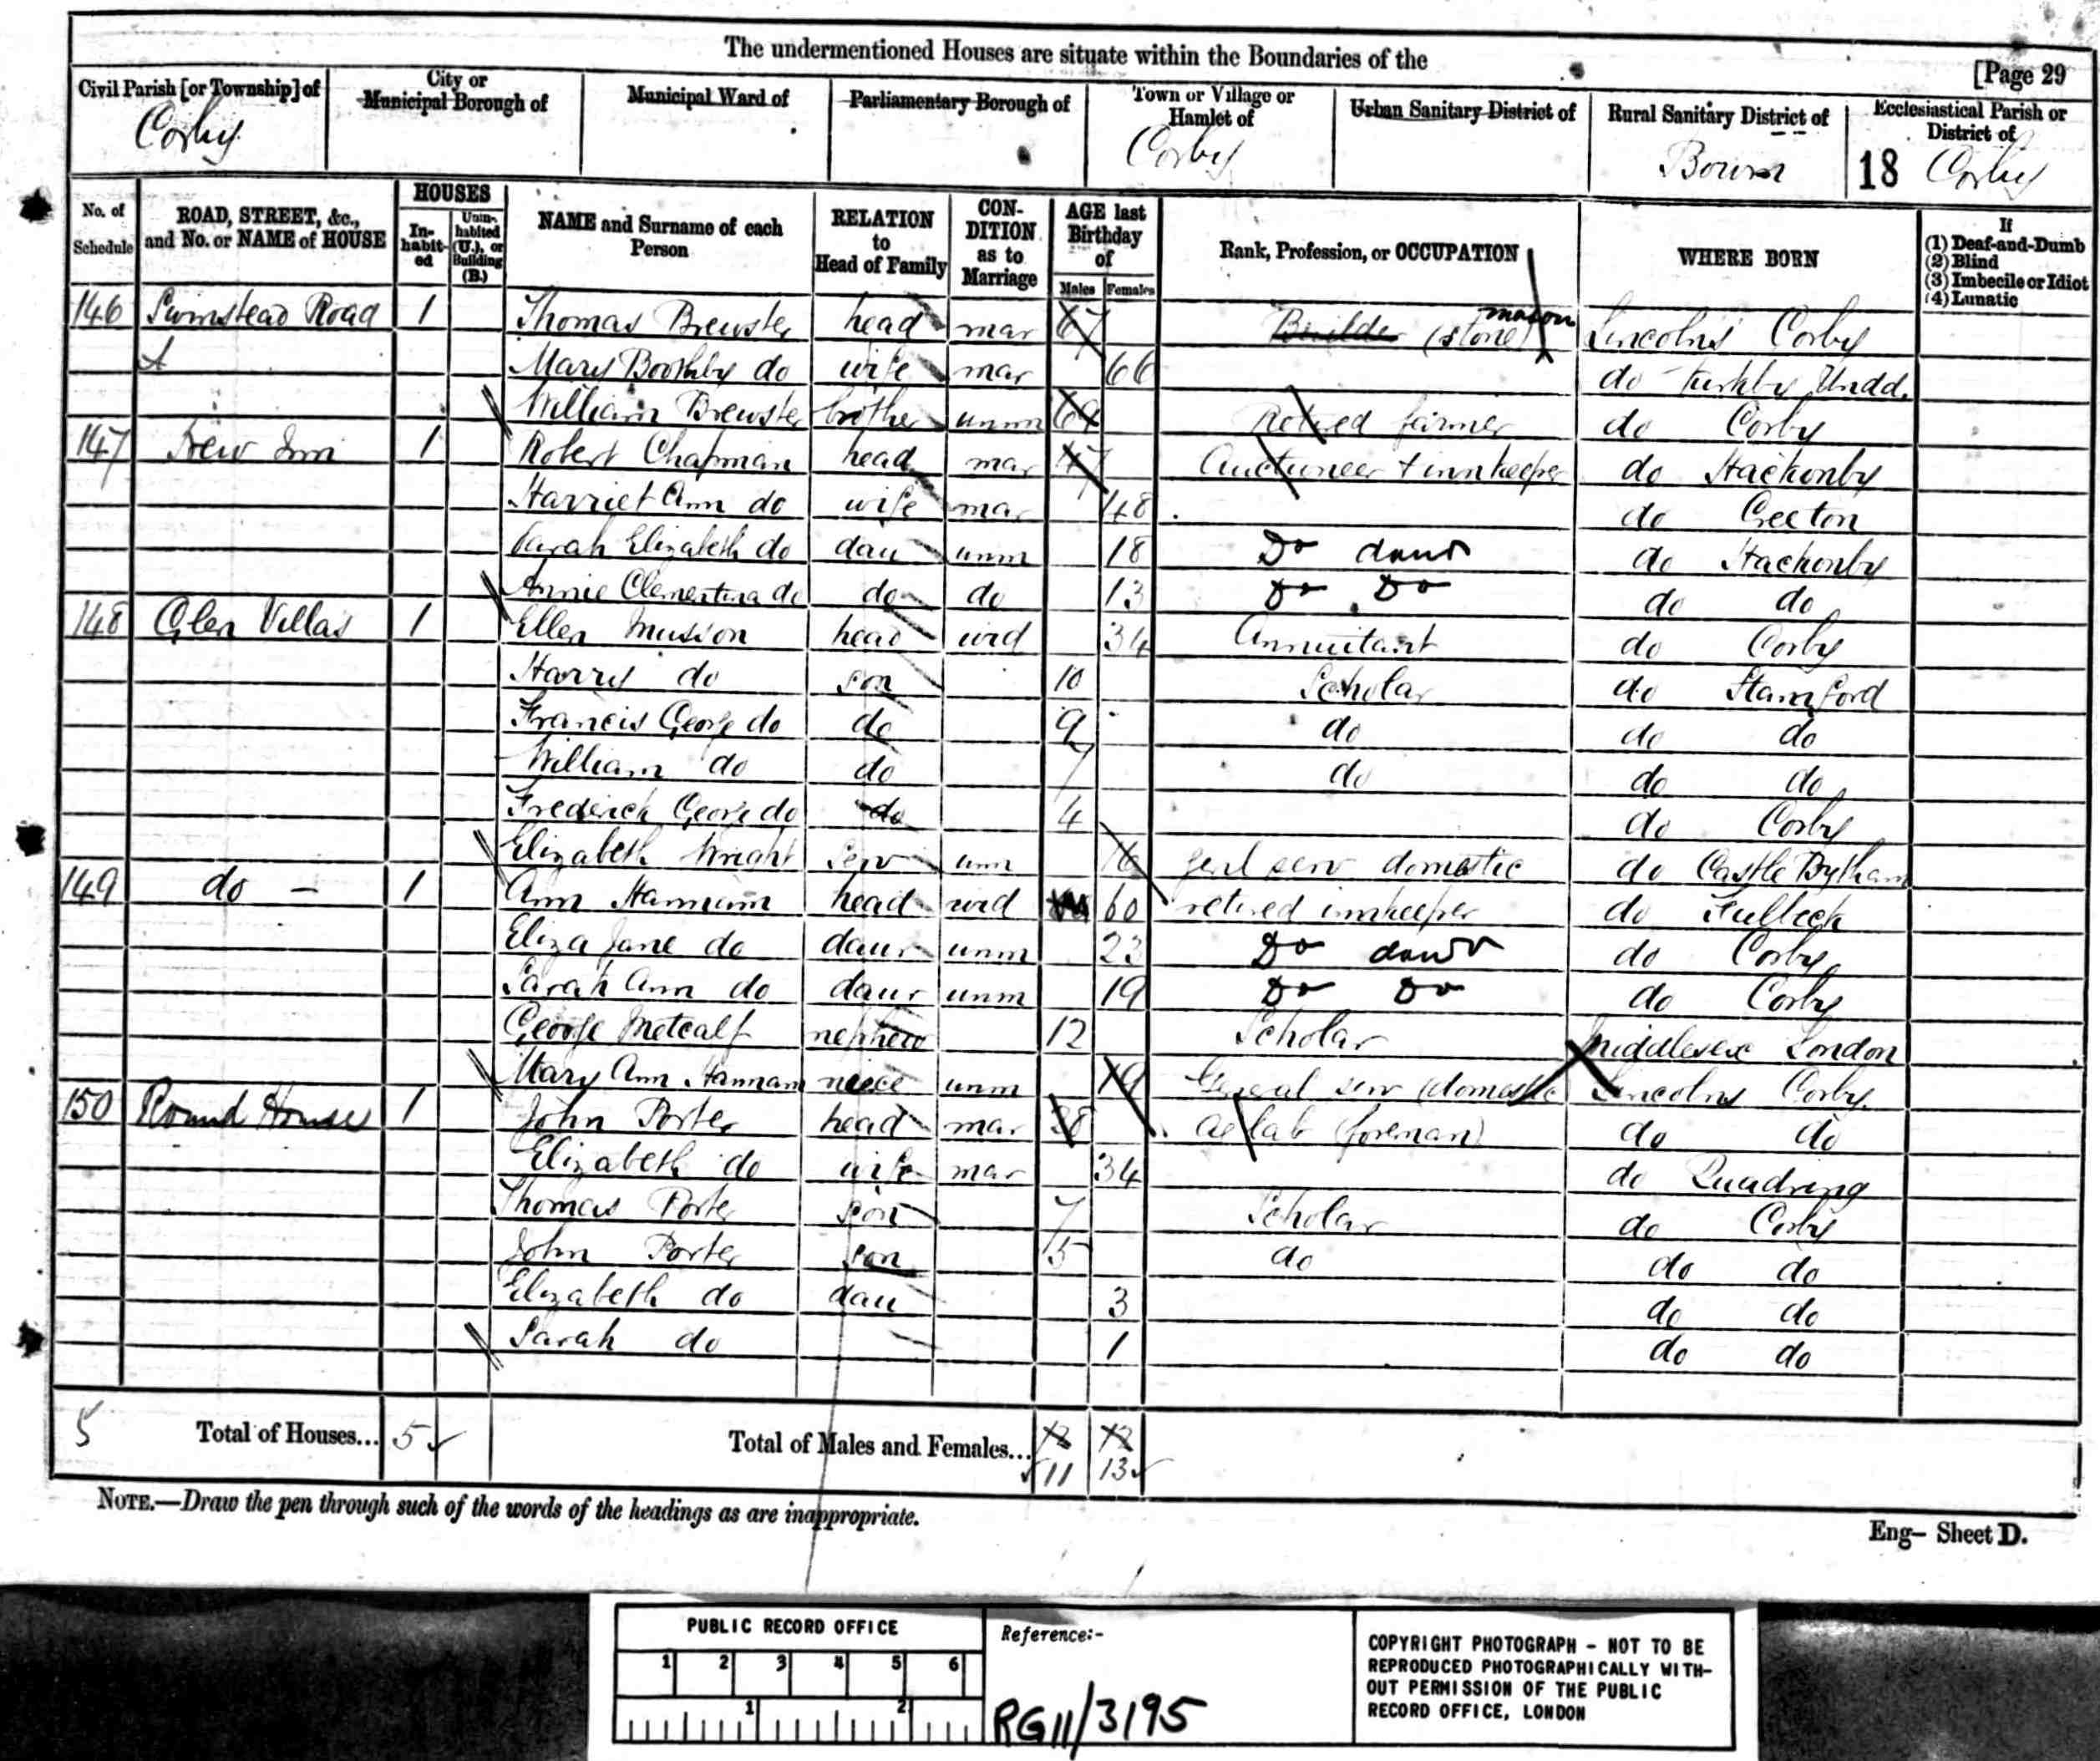 The undermentioned Houses are situate within the Boundaries of the
[Page 29
Civil Parish [or Township] of
Corby
City or Municipal Borough of
Municipal Ward of
Parliamentary Borough of
Town or Village or Hamlet of
Corby
Urban Sanitary District of
Rural Sanitary District of
Bourn
Ecclesiastical Parish or District of
18 Corby
No. of Schedule
ROAD, STREET, &c., and No. or NAME of HOUSE
HOUSES
In-habit-ed
Unin-habited (U.), or Building (B.)
NAME and Surname of each Person
RELATION to Head of Family
CON-DITION as to Marriage
AGE last Birthday of
Males Females
Rank, Profession, or OCCUPATION
WHERE BORN
If
(1) Deaf-and-Dumb
(2) Blind
(3) Imbecile or Idiot
(4) Lunatic
146 Swinstead Road 1 Thomas Brewster head mar 67 Builder (stone) mason Lincolns Corby
Mary Boothby do wife mar 66 do Kirkby Undd.
William Brewster brother unm 64 Retired farmer do Corby
147 New Inn 1 Robert Chapman head mar 47 Auctioneer + innkeeper do Hackonby
Harriet Ann do wife mar 48 do Creeton
Sarah Elizabeth do dau unm 18 Do daur do Hackonby
Annie Clementina do do do 13 Do Do do do
148 Glen Villas 1 Ellen Musson head wid 34 Annuitant do Corby
Harry do son 10 Scholar do Stamford
Francis George do do 9 do do do
William do do 7 do do do
Frederick George do do 4 do Corby
Elizabeth Wright serv unm 16 genl serv domestic do Castle Bytham
149 do - 1 Ann Hannam head wid 60 retired innkeeper do Fulbeck
Eliza Jane do daur unm 23 Do daur do Corby
Sarah Ann do daur unm 19 Do Do do Corby
George Metcalf nephew 12 Scholar Middlesex London
Mary Ann Hannam niece unm 19 General serv (domestic Lincolns Corby
150 Round House 1 John Porter head mar 38 Ag lab (foreman) do do
Elizabeth do wife mar 34 do Quadring
Thomas Porter son 7 Scholar do Corby
John Porter son 5 do do do
Elizabeth do dau 3 do do
Sarah do 1 do do
5 Total of Houses... 5
Total of Males and Females... 12 12
11 13
NOTE.—Draw the pen through such of the words of the headings as are inappropriate.
Eng- Sheet D.
PUBLIC RECORD OFFICE
1 2 3 4 5 6
1 2
Reference:-
RG11/3195
COPYRIGHT PHOTOGRAPH - NOT TO BE
REPRODUCED PHOTOGRAPHICALLY WITH-
OUT PERMISSION OF THE PUBLIC
RECORD OFFICE, LONDON